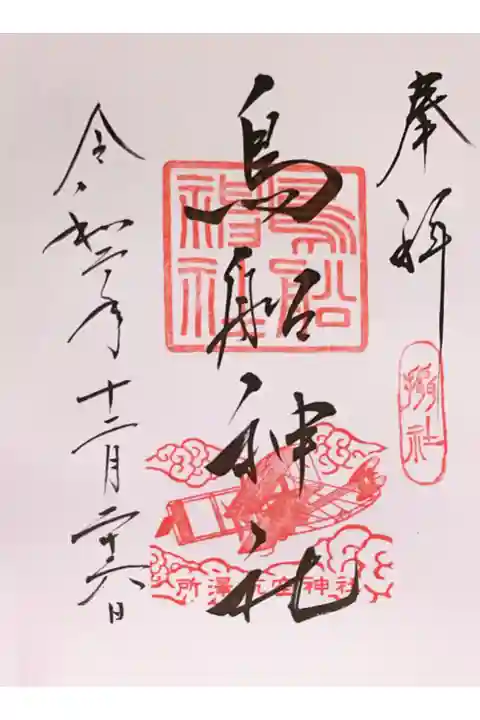 奉拝
鳥船神社
鳥船
神社
所澤航空神社
令和二年十二月二十六日